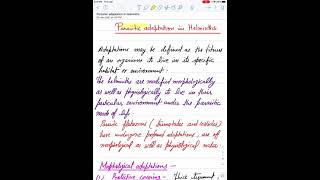 Parasitic adaptation in Helminths
Adaptations may be defined as the fitness
of an organisms to live in its specific
habitat or environment.
The helminths are modified morphologically
as well as physiologically to live in their
particular environment under the parasitic
mode of life.
Parasitic flatworms (trematodes and cestodes)
have undergone profound adaptations, are of
morphological as well as physiological nature.
Morphological adaptations —
(1) Protective covering - Thick tegument